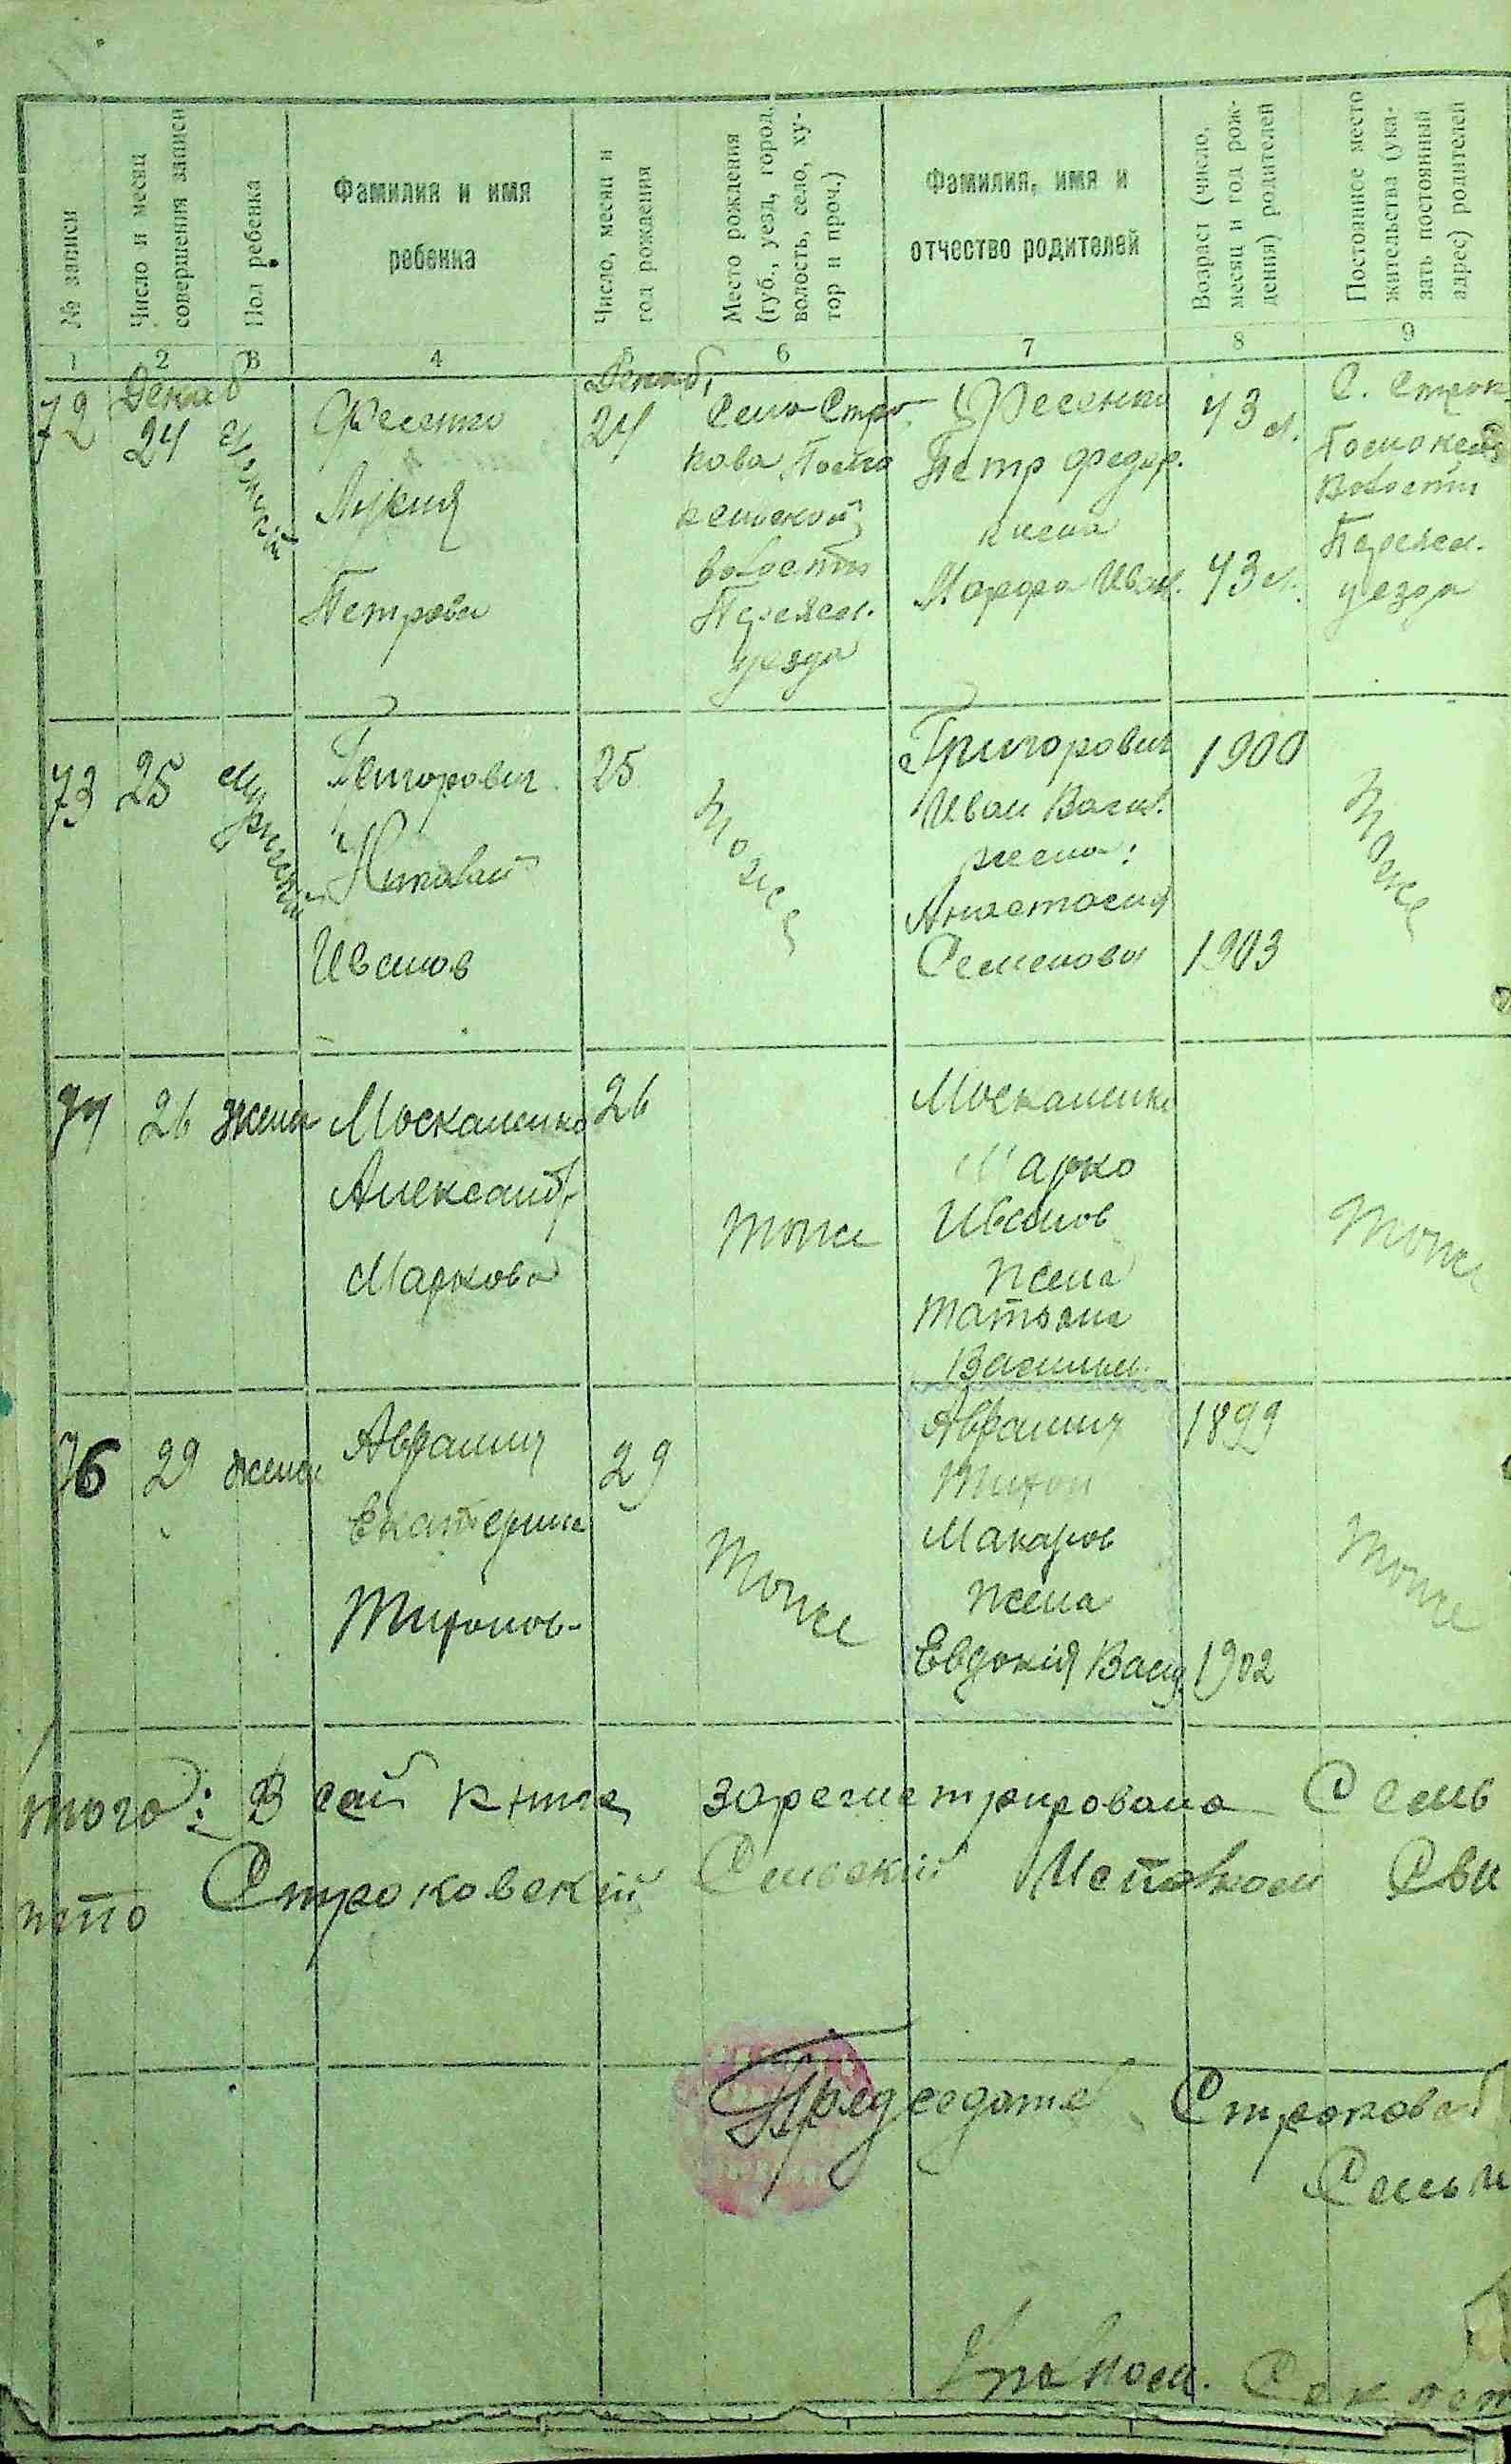 № записи
Число и месяц
совершения записи
Пол ребенка
Фамилия и имя
ребенка
Число, месяц и
год рождения
Место рождения
(губ., уезд, город,
волость, село, ху-
тор и проч.)
Фамилия, имя и
отчество родителей
Возраст (число,
месяц и год рож-
дения) родителей
Постоянное место
жительства (ука-
зать постоянный
адрес) родителей
1 2 3 4 5 6 7 8 9
72
Декаб
24
Женский
Фесенко
Лукия
Петрова
Декаб.
24
Село Стро-
кова
волости
Переясл.
уезда
Фесенко
Петр Федор.
жена
Марфа Иван.
43 л.
43 л.
С. Строк.
волости
Переясл.
уезда
73
25
Мужский
Григорович
Николай
Иванов
25
Тоже
Григорович
Иван Васил.
жена:
Анастасия
Семенова
1900
1903
Тоже
74
26
жен
Москаленко
Александр
Маркова
26
тоже
Москаленко
Марко
Иванов
жена
Татьяна
Васильев.
тоже
76
29
женс
Авраимя
Екатерина
Тихонов-
29
тоже
Авраимя
Тихон
Макаров
жена
Евдокія Васил
1899
1902
тоже
того: В сей книге зарегистрировано Семь
что Строковский Сельский Исполком Сви
Председатель Строковск
Сельи
Секрет